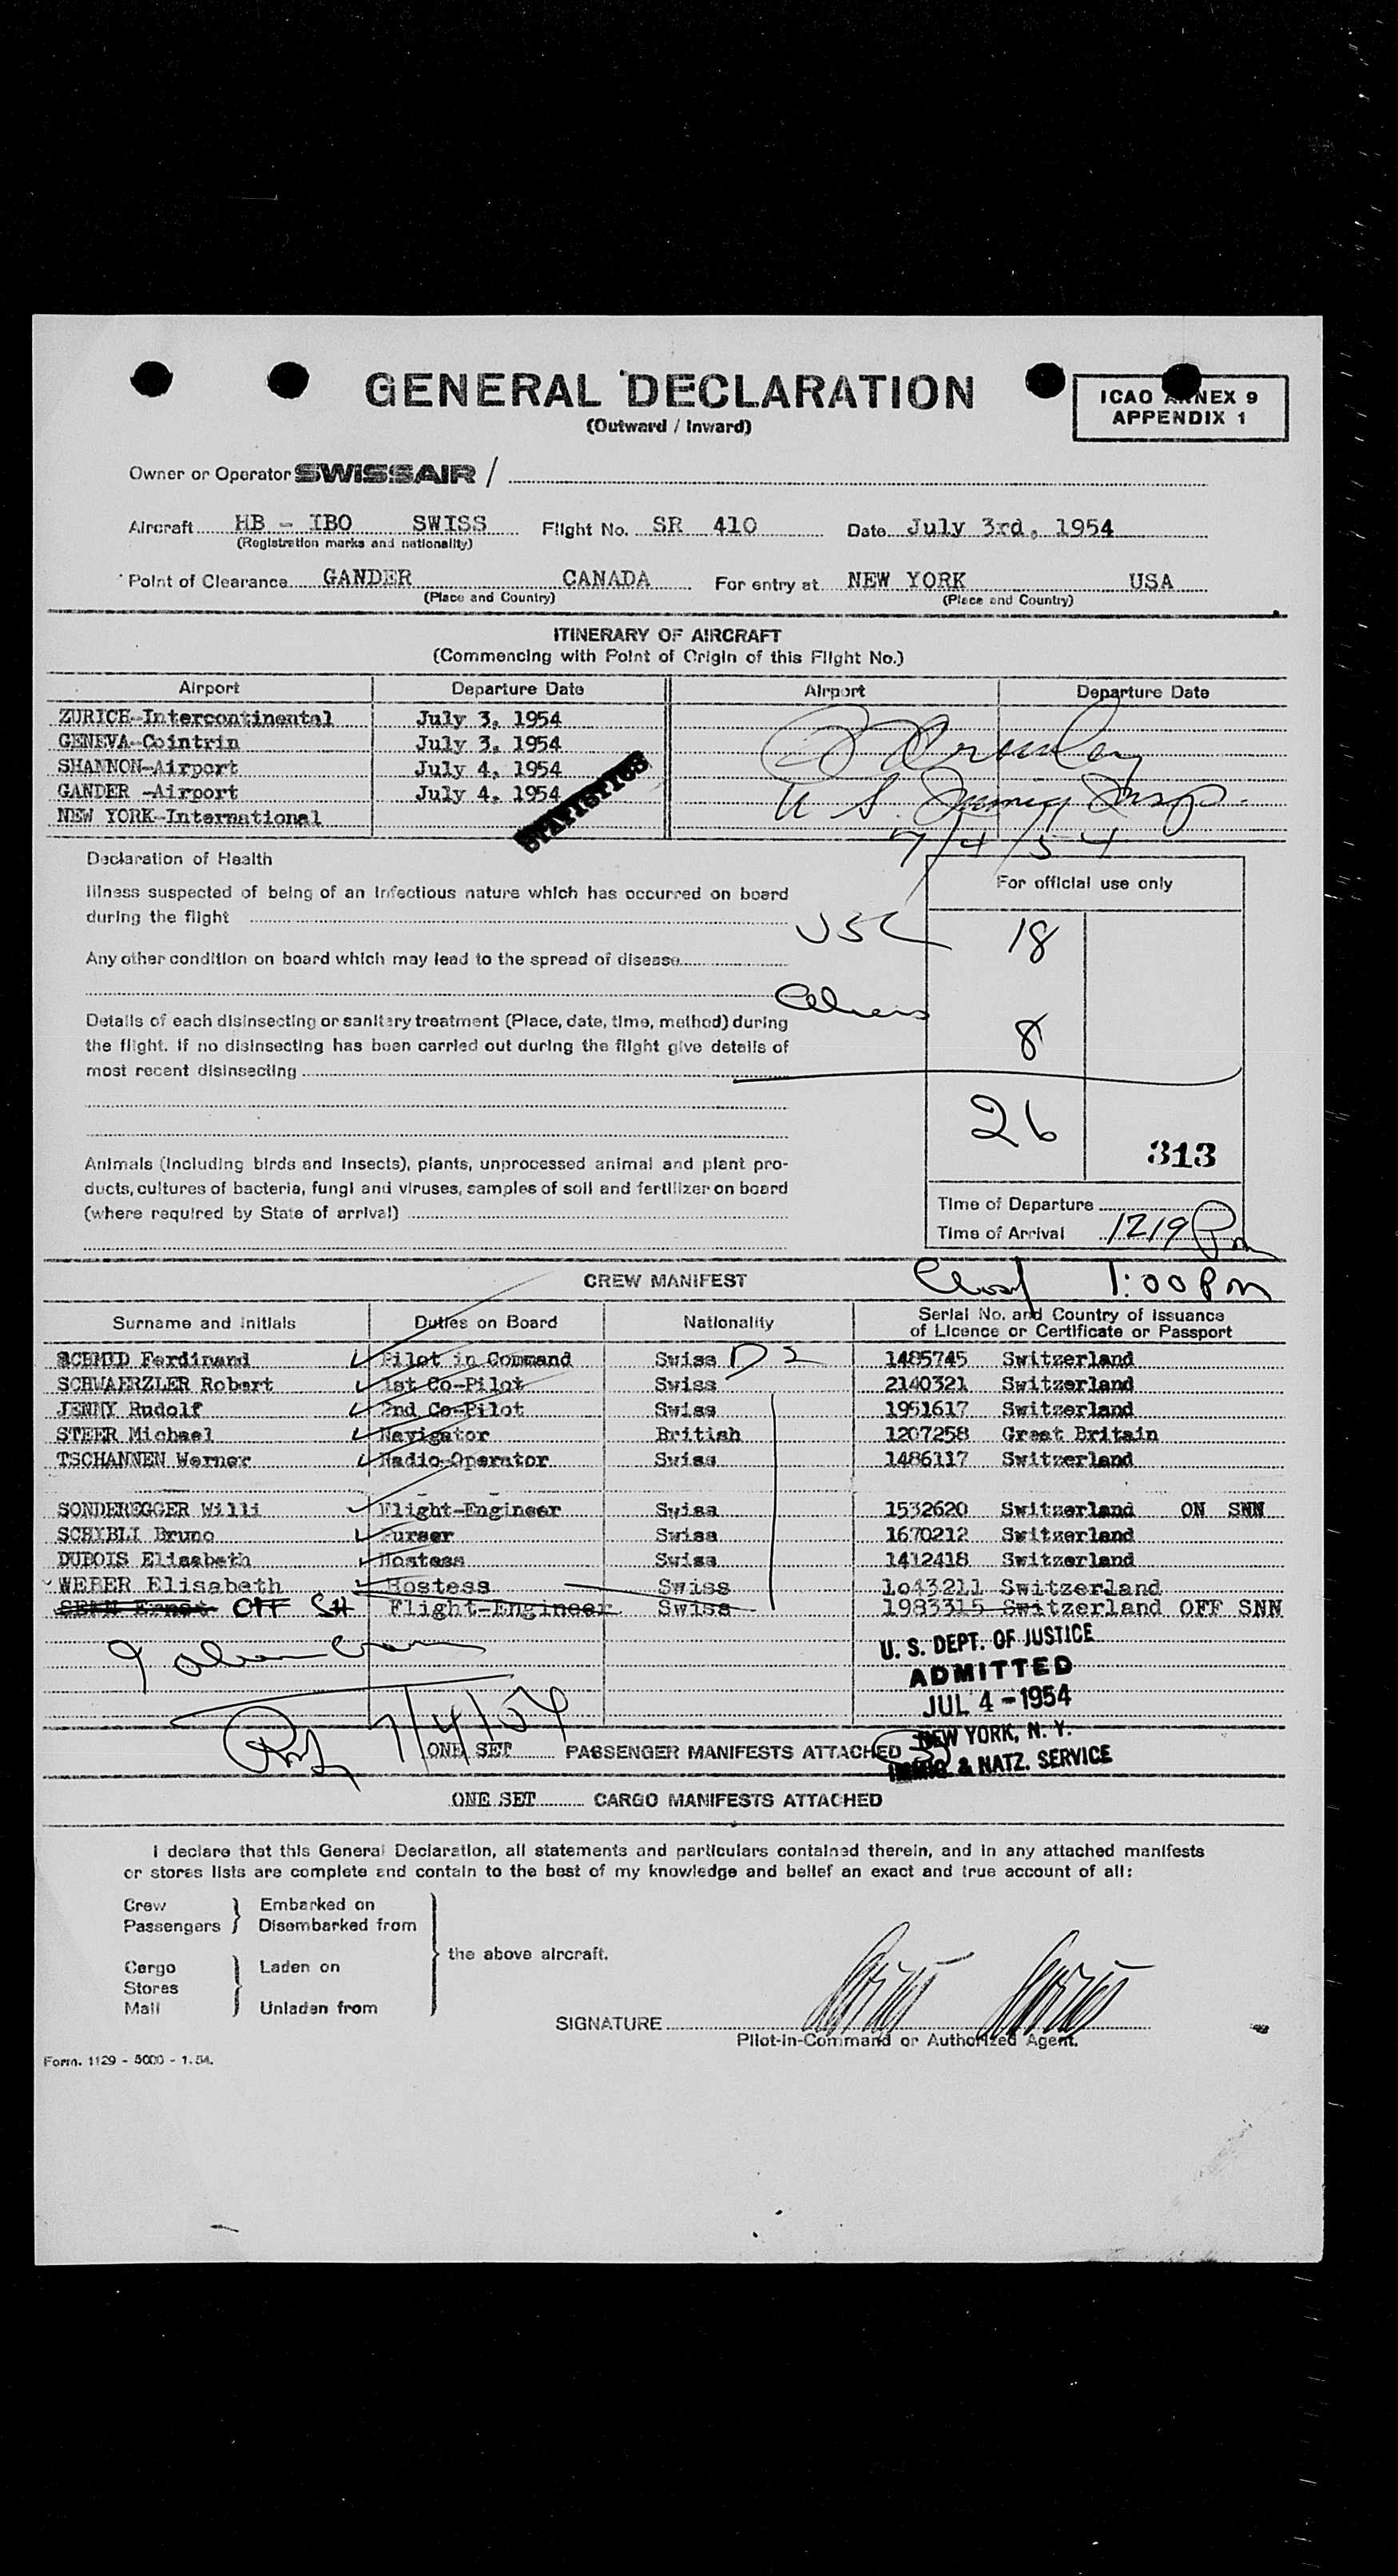 GENERAL DECLARATION
(Outward / Inward)
ICAO ANNEX 9
APPENDIX 1
Owner or Operator SWISSAIR /
Aircraft HB - IBO SWISS Flight No. SR 410 Date July 3rd, 1954
(Registration marks and nationality)
Point of Clearance GANDER CANADA For entry at NEW YORK USA
(Place and Country) (Place and Country)
ITINERARY OF AIRCRAFT
(Commencing with Point of Origin of this Flight No.)
Airport Departure Date Airport Departure Date
ZURICH-Intercontinental July 3, 1954
GENEVA-Cointrin July 3, 1954
SHANNON-Airport July 4, 1954
GANDER -Airport July 4, 1954
NEW YORK-International
STATISTICS
U S. Immig Insp.
7/4/54
Declaration of Health
Illness suspected of being of an infectious nature which has occurred on board
during the flight
Any other condition on board which may lead to the spread of disease
Details of each disinsecting or sanitary treatment (Place, date, time, method) during
the flight. If no disinsecting has been carried out during the flight give details of
most recent disinsecting
Animals (including birds and insects), plants, unprocessed animal and plant pro-
ducts, cultures of bacteria, fungi and viruses, samples of soil and fertilizer on board
(where required by State of arrival)
For official use only
USC 18
Aliens 8
26
313
Time of Departure
Time of Arrival 1219 Pm
1:00 PM
CREW MANIFEST
Surname and Initials Duties on Board Nationality Serial No. and Country of Issuance
of Licence or Certificate or Passport
SCHMID Ferdinand Pilot in Command Swiss D 2 1485745 Switzerland
SCHWAERZLER Robert 1st Co-Pilot Swiss 2140321 Switzerland
JENNY Rudolf 2nd Co-Pilot Swiss 1951617 Switzerland
STEER Michael Navigator British 1207258 Great Britain
TSCHANNEN Werner Radio-Operator Swiss 1486117 Switzerland
SONDEREGGER Willi Flight-Engineer Swiss 1532620 Switzerland ON SNN
SCHYBLI Bruno Purser Swiss 1670212 Switzerland
DUBOIS Elisabeth Hostess Swiss 1412418 Switzerland
WEBER Elisabeth Hostess Swiss 1o43211 Switzerland
Ernst Off SH Flight-Engineer Swiss 1983315 Switzerland OFF SNN
9 alien crew
7/4/54
U. S. DEPT. OF JUSTICE
ADMITTED
JUL 4 - 1954
NEW YORK, N. Y.
IMMIG. & NATZ. SERVICE
ONE SET PASSENGER MANIFESTS ATTACHED
ONE SET CARGO MANIFESTS ATTACHED
I declare that this General Declaration, all statements and particulars contained therein, and in any attached manifests
or stores lists are complete and contain to the best of my knowledge and belief an exact and true account of all:
Crew Embarked on
Passengers Disembarked from
the above aircraft.
Cargo Laden on
Stores
Mail Unladen from
SIGNATURE
Pilot-in-Command or Authorized Agent.
Form. 1129 - 5000 - 1.54.